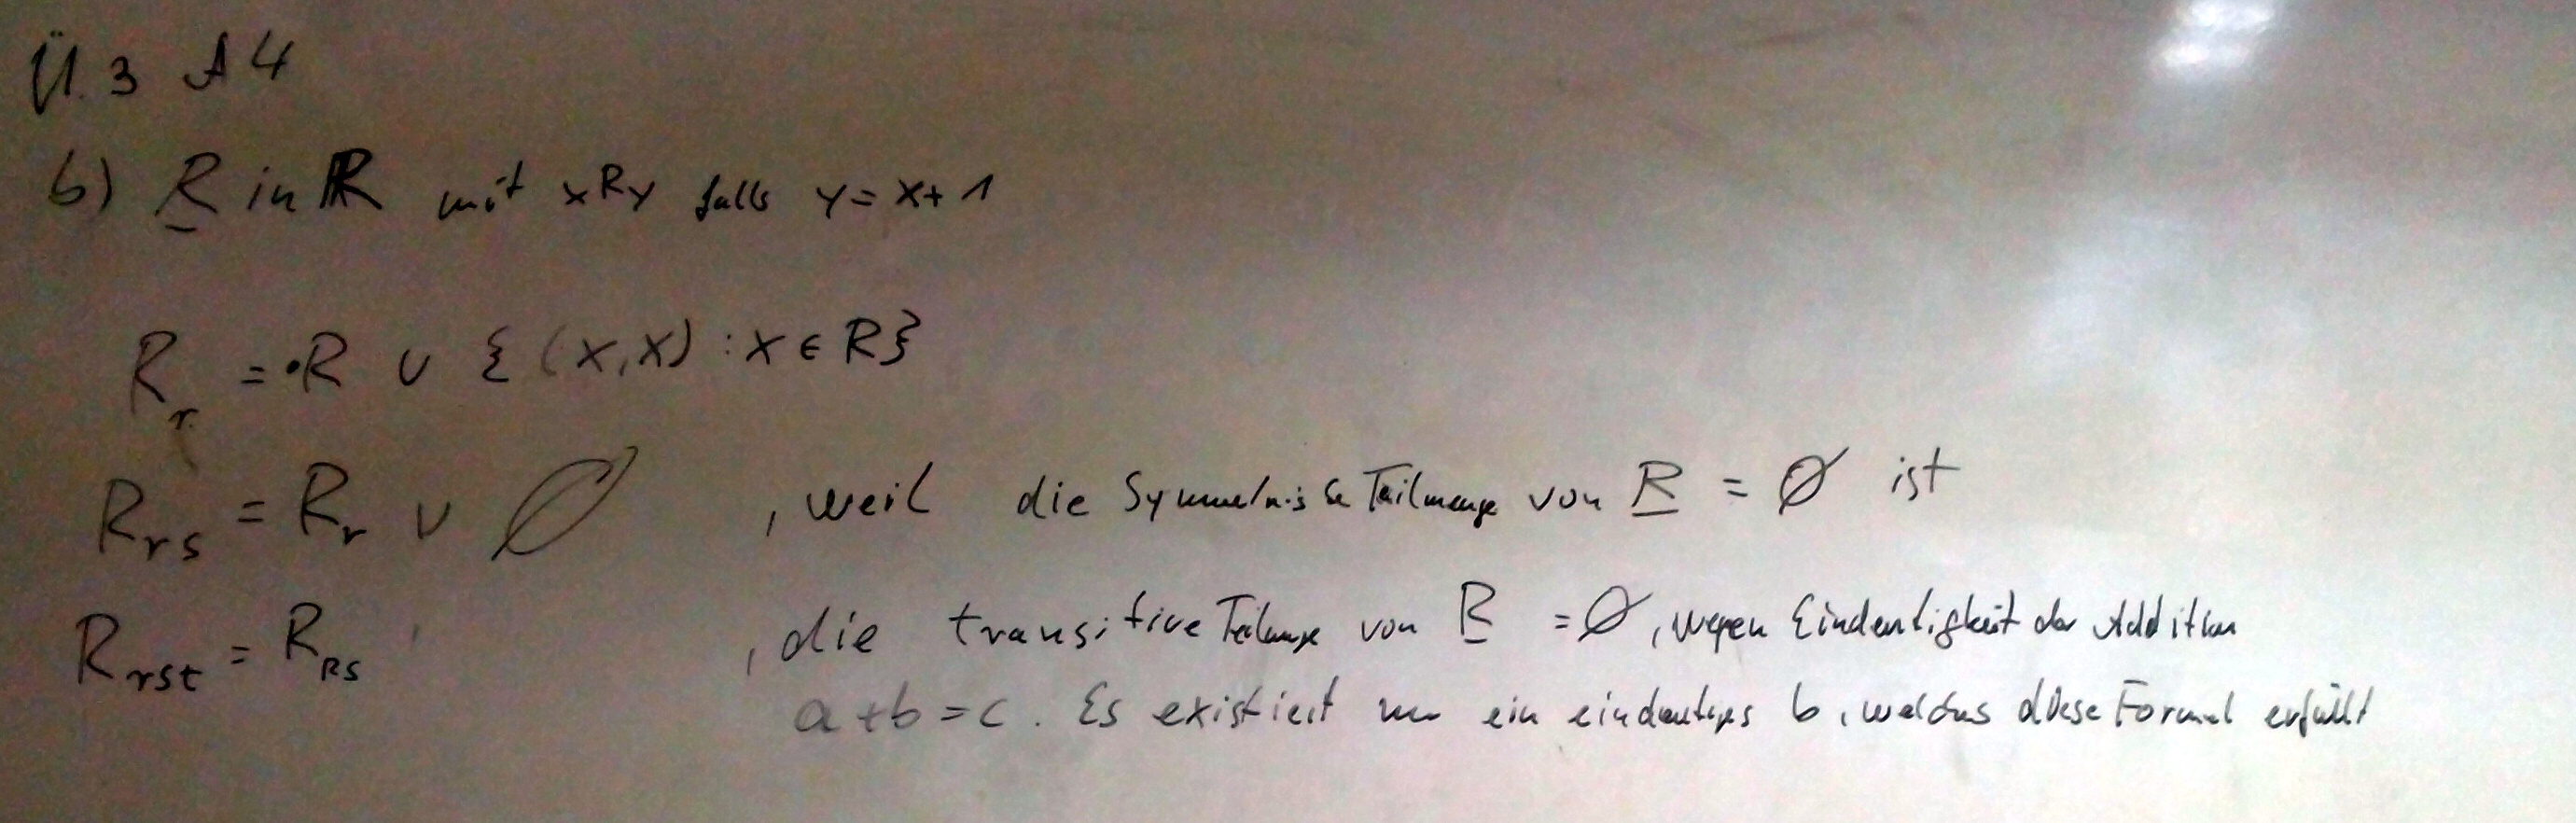 Ü. 3 A4
b) R in ℝ mit xRy falls y = x + 1
R_r = R ∪ { (x,x) : x ∈ R}
R_rs = R_r ∪ ∅ , weil die Symmetrische Teilmenge von R = ∅ ist
R_rst = R_RS , die transitive Teilmenge von R = ∅, wegen Eindeutigkeit der Addition
a + b = c. Es existiert nur ein eindeutiges b, welches diese Formel erfüllt